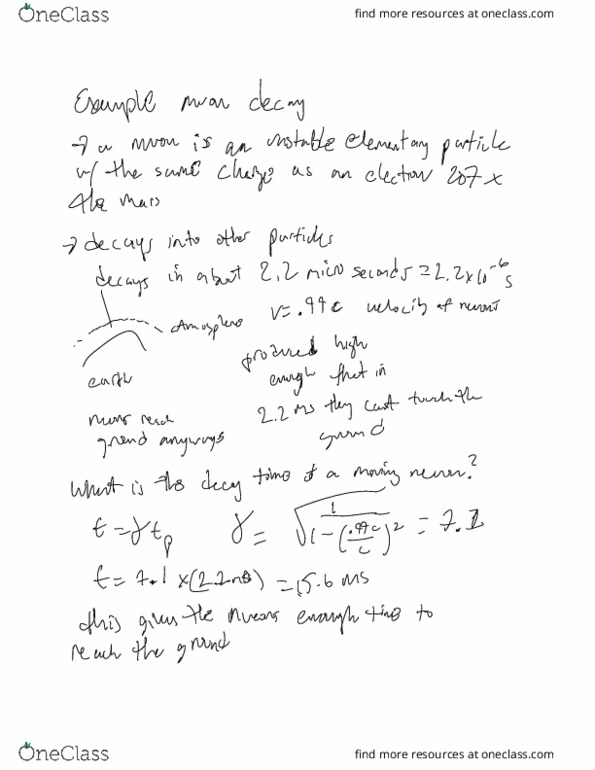 OneClass
find more resources at oneclass.com
Example muon decay
→ a muon is an unstable elementary particle
w/ the same charge as an electron 207 x
the mass
→ decays into other particles
decays in about 2.2 micro seconds = 2.2 x 10^-6 s
atmosphere
v = .99c velocity of
earth
produced high
enough that in
2.2 ms they cant touch the
ground
muons reach
ground anyways
What is the decay time of a moving ?
t = γ t_p
γ = √(1/(1-(.99c/c)^2)) = 7.1
t = 7.1 x (2.2 ms) = 15.6 ms
this gives the muons enough time to
reach the ground
OneClass
find more resources at oneclass.com